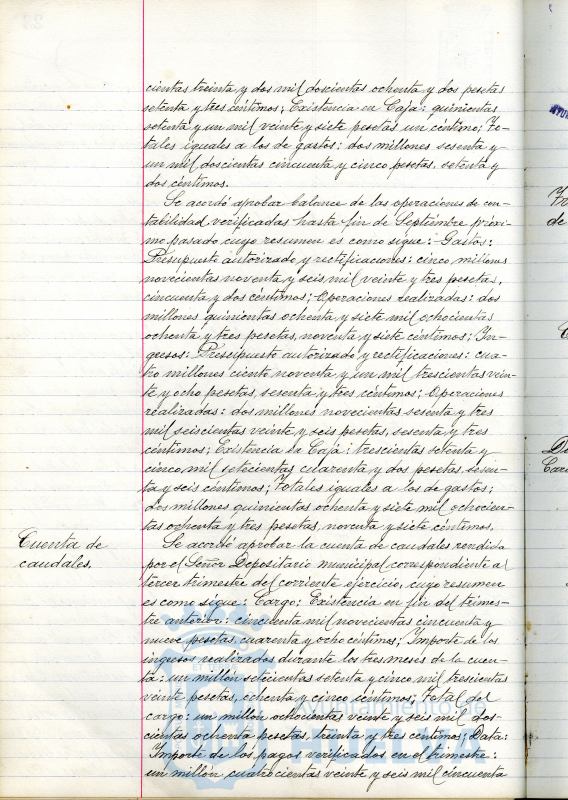 cientas treinta y dos mil doscientas ochenta y dos pesetas
setenta y tres céntimos; Existencia en Caja: quinientas
setenta y un mil veinte y siete pesetas un céntimo; To-
tales iguales a los de gastos: dos millones sesenta y
un mil doscientas cincuenta y cinco pesetas, setenta y
dos céntimos.
Se acordó aprobar balance de las operaciones de con-
tabilidad verificadas hasta fin de Septiembre próxi-
mo pasado cuyo resumen es como sigue:- Gastos:
Presupuesto autorizado y rectificaciones: cinco millones
novecientas noventa y seis mil veinte y tres pesetas,
cincuenta y dos céntimos; Operaciones realizadas: dos
millones quinientas ochenta y siete mil ochocientas
ochenta y tres pesetas, noventa y siete céntimos; In-
gresos: Presupuesto autorizado y rectificaciones: cua-
tro millones ciento noventa y un mil trescientas vein-
te y ocho pesetas, sesenta y tres céntimos; Operaciones
realizadas: dos millones novecientas sesenta y tres
mil seiscientas veinte y seis pesetas, sesenta y tres
céntimos; Existencia en Caja: trescientas setenta y
cinco mil setecientas cuarenta y dos pesetas sesen-
ta y seis céntimos; Totales iguales a los de gastos;
dos millones quinientas ochenta y siete mil ochocien-
tas ochenta y tres pesetas, noventa y siete céntimos.
Cuenta de
caudales.
Se acordó aprobar la cuenta de caudales rendida
por el Señor Depositario municipal correspondiente al
tercer trimestre del corriente ejercicio, cuyo resumen
es como sigue: Cargo: Existencia en fin del trimes-
tre anterior: cincuenta mil novecientas cincuenta y
nueve pesetas, cuarenta y ocho céntimos; Importe de los
ingresos realizados durante los tres meses de la cuen-
ta: un millón setecientas setenta y cinco mil trescientas
veinte pesetas, ochenta y cinco céntimos; Total del
cargo: un millón ochocientas veinte y seis mil dos-
cientas ochenta pesetas, treinta y tres céntimos; Data:
Importe de los pagos verificados en el trimestre:
un millón cuatrocientas veinte y seis mil cincuenta
Ayuntamiento de